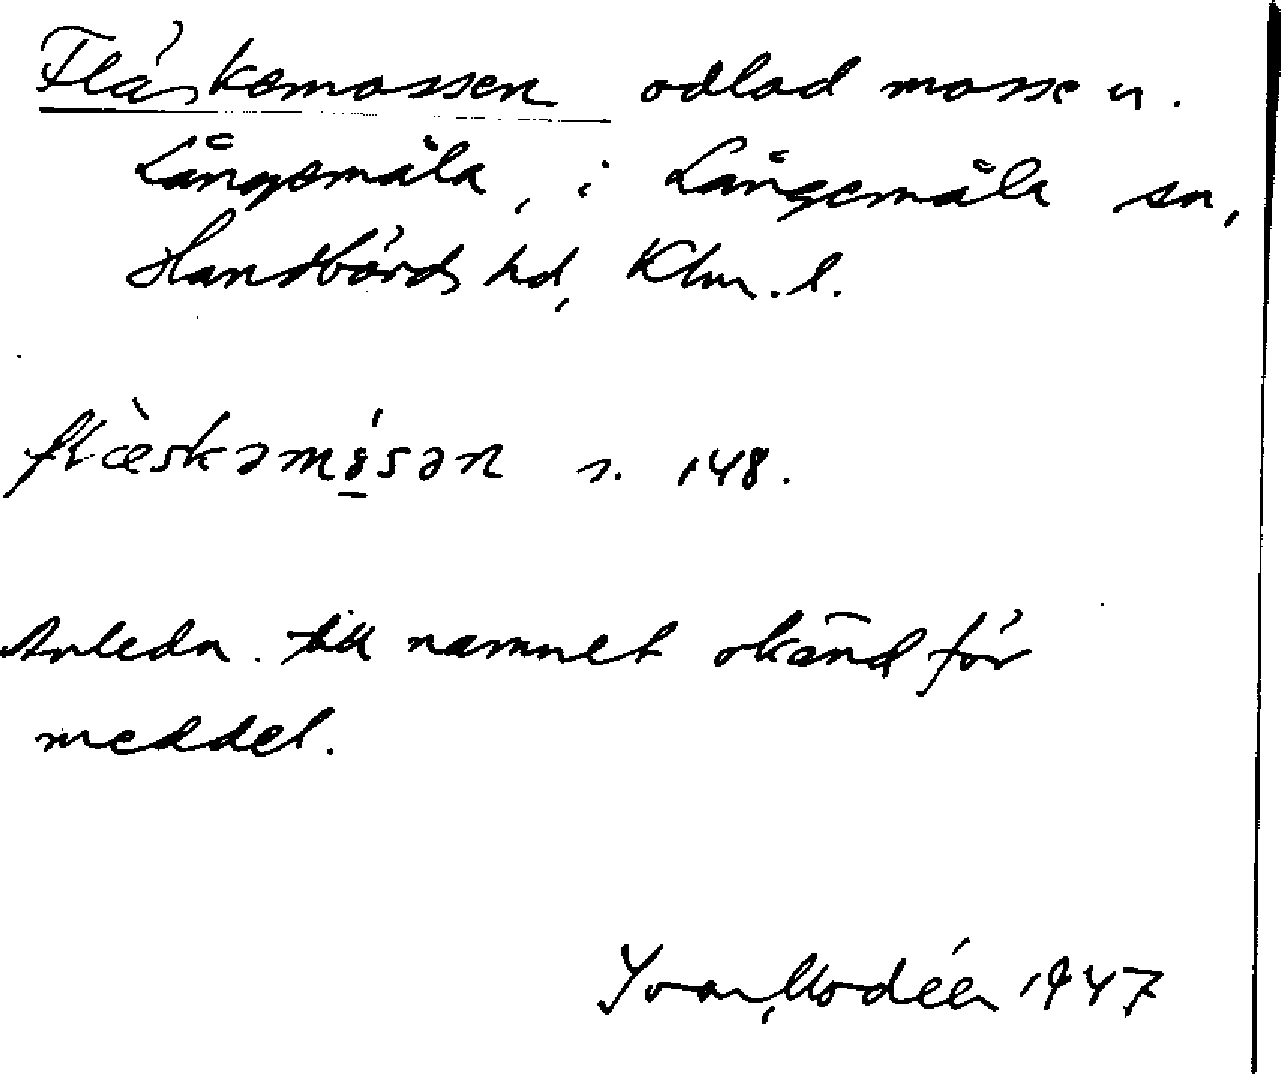 Fläskemossen odlad mosse u.
Långemåla, i Långemåla sn,
Handbörds hd, Klm. l.
flæskəmɵ̀sən s. 148.
Anledn. till namnet okänd för
meddel.
Ivar Modéer 1947